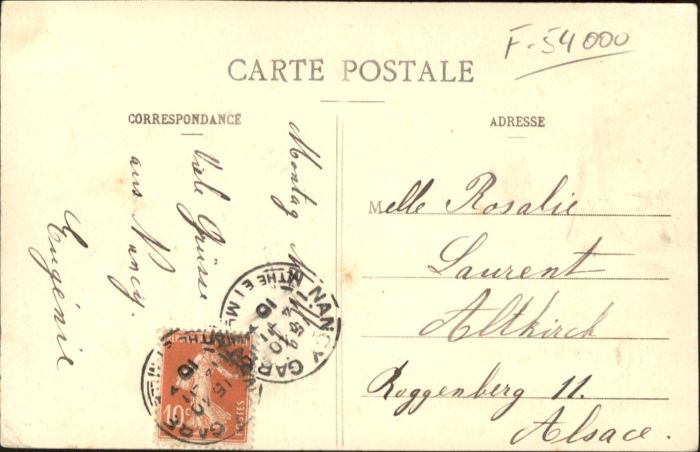 F-54000
CARTE POSTALE
CORRESPONDANCE
ADRESSE
Montag
Viele Grüsse
aus Nancy.
Eugénie
Melle Rosalie
Laurent
Altkirch
Roggenberg 11.
Alsace.
NANCY GARE
MTHE ET M
10
GARE
10c
POSTES